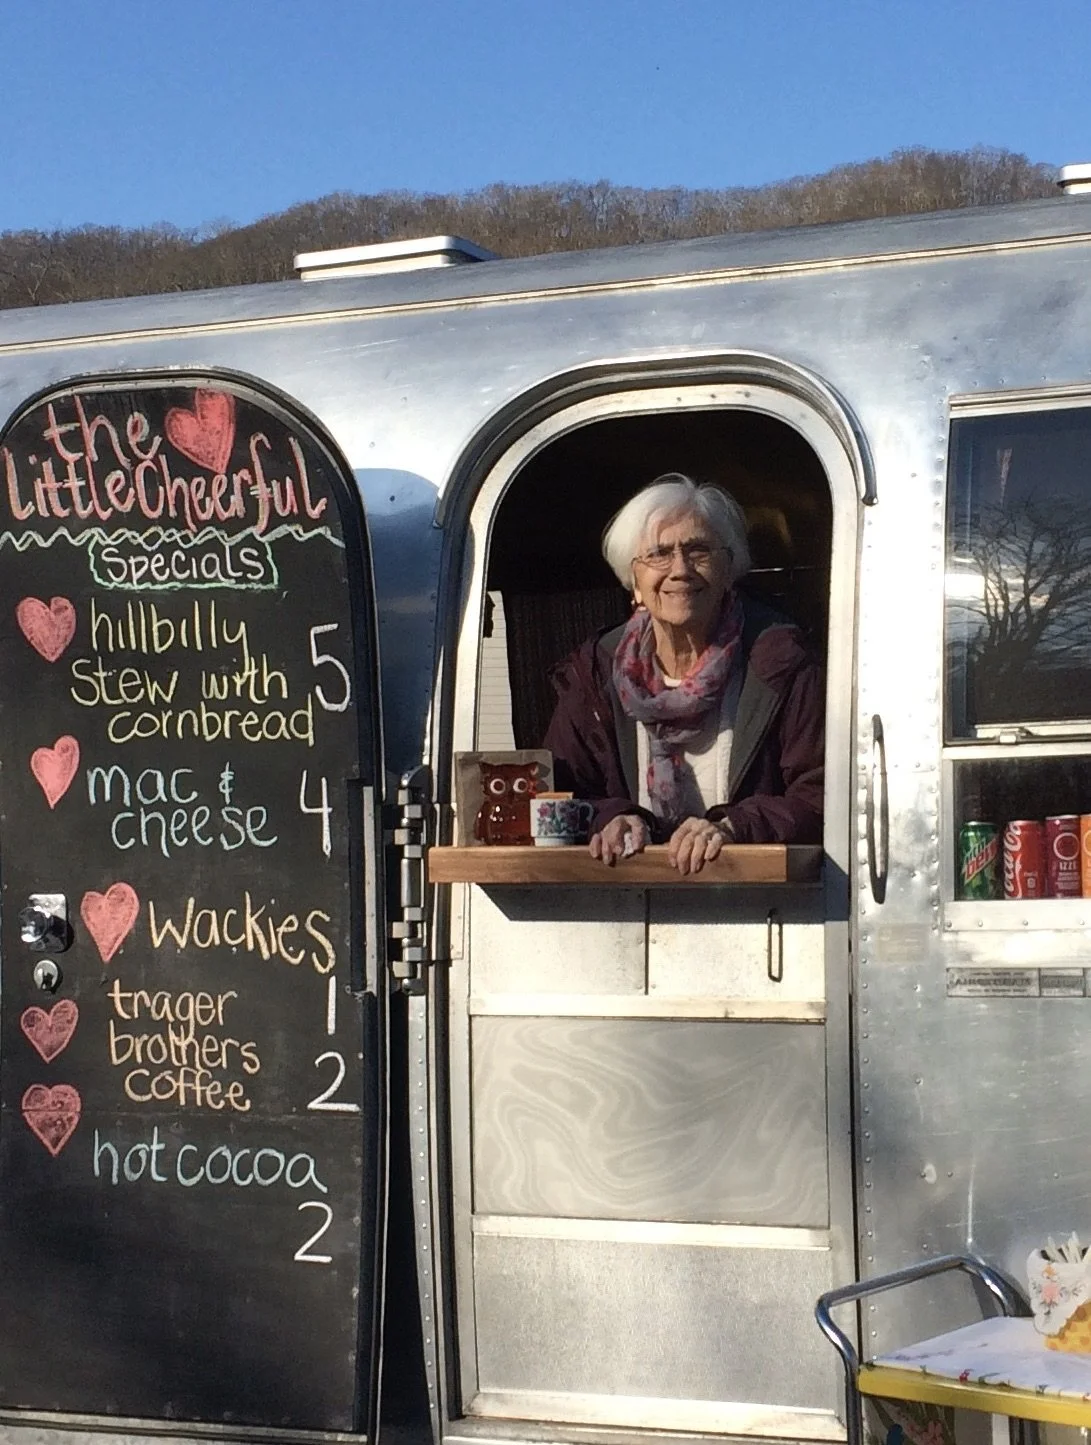 the
Little Cheerful
specials
hillbilly
stew with
cornbread
5
mac &
cheese
4
wackies
1
trager
brothers
coffee
2
hot cocoa
2
Coca-Cola
IZZE